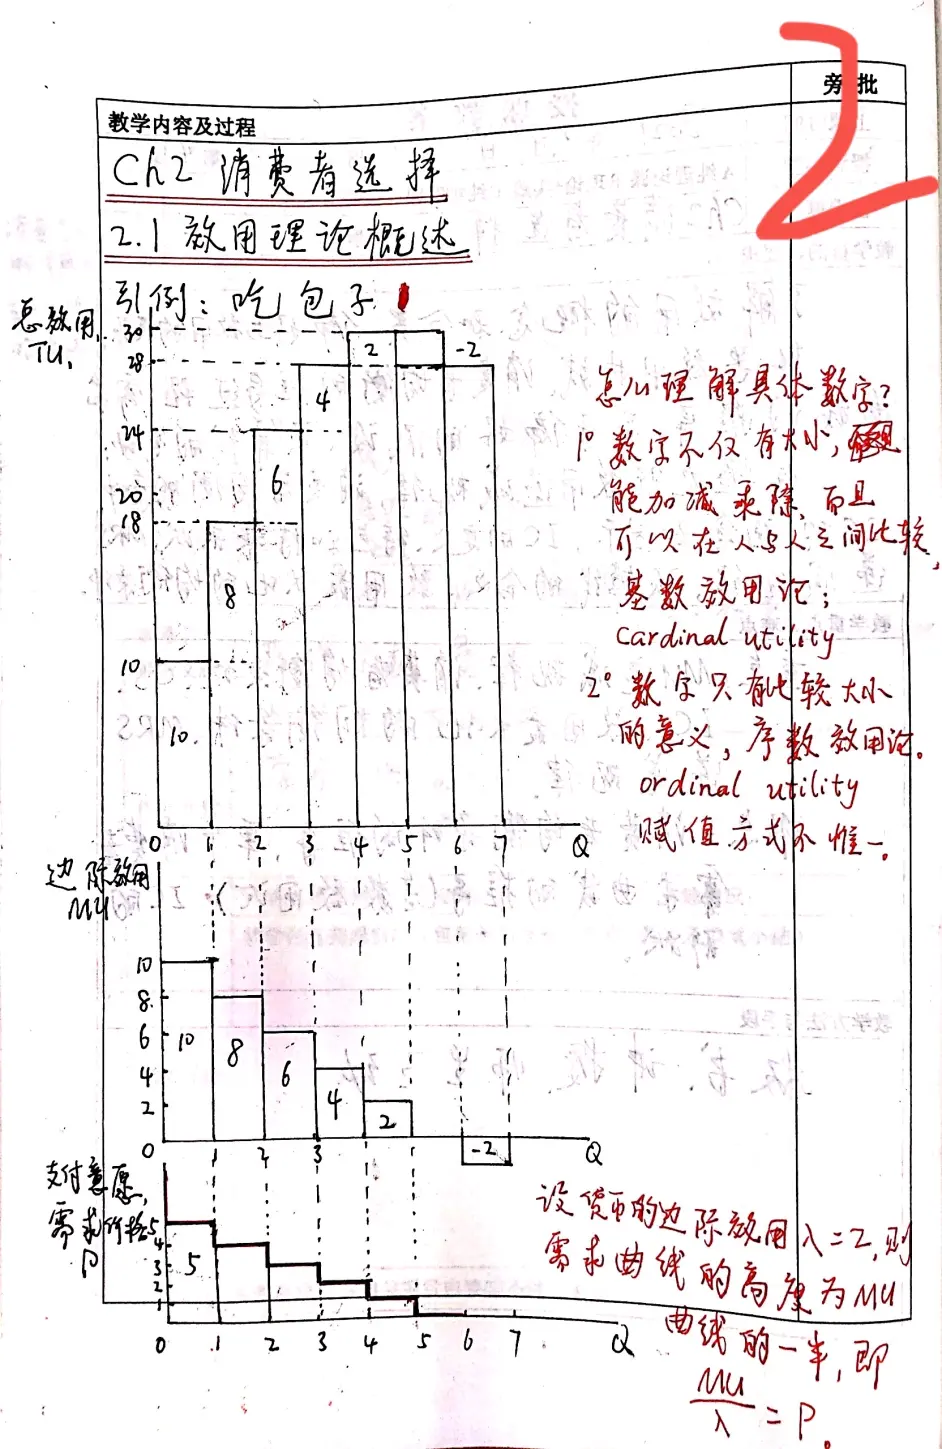 2
旁批
教学内容及过程
Ch2 消费者选择
2.1 效用理论概述
引例：吃包子
总效用,
TU,
30
28
24
20
18
10
10
8
6
4
2
-2
0 1 2 3 4 5 6 7 Q
怎么理解具体数字?
1° 数字不仅有大小,
能加减乘除,而且
可以在人与人之间比较,
基数效用论;
cardinal utility
2° 数字只有比较大小
的意义,序数效用论.
ordinal utility
赋值方式不惟一.
边际效用
MU
10
8
6
4
2
0
10
8
6
4
2
-2
1 2 3 Q
支付意愿,
需求价格
P
5
4
3
2
1
5
0 1 2 3 4 5 6 7 Q
设货币的边际效用λ=2,则
需求曲线的高度为MU
曲线的一半,即
MU/λ = P.